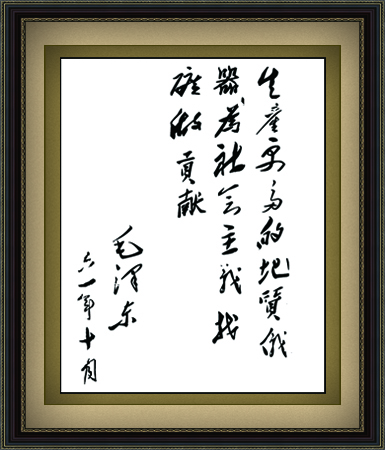 生產更多的地質儀
器為社会主義找
礦做貢献
毛澤东
六一年十月